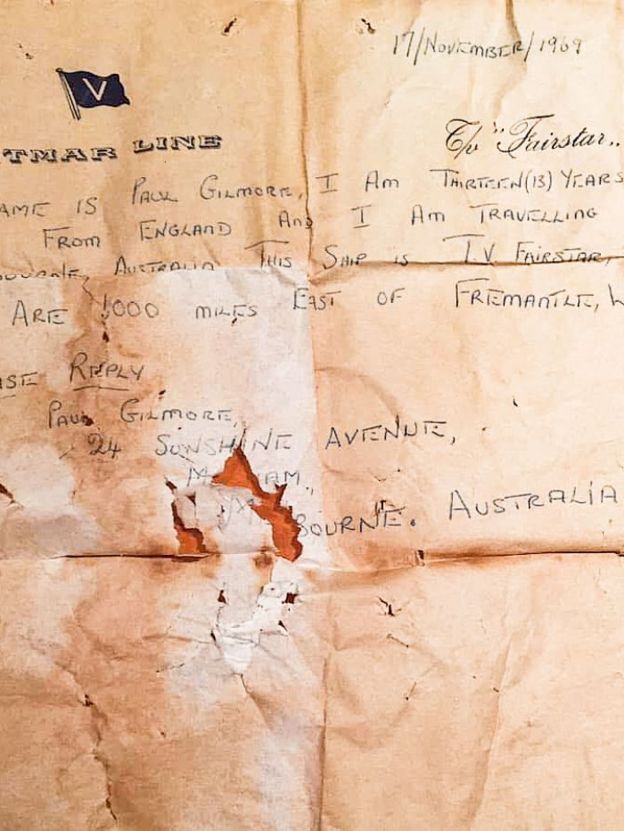 17/NOVEMBER/1969
V
TMAR LINE
T/v "Fairstar„
AME IS PAUL GILMORE, I AM THIRTEEN(13) YEARS
FROM ENGLAND AND I AM TRAVELLING
BOURNE, AUSTRALIA THIS SHIP IS T.V. FAIRSTAR,
ARE 1000 MILES EAST OF FREMANTLE, W
ASE REPLY
PAUL GILMORE,
24 SUNSHINE AVENUE,
M AM,
BOURNE. AUSTRALIA